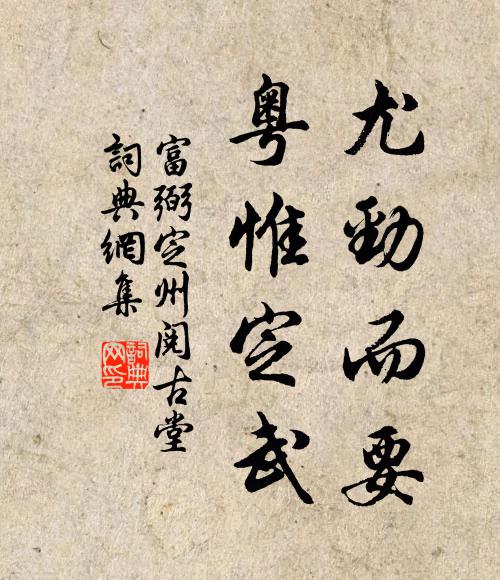 尤勁而要
粵惟定武
富弼定州閱古堂
詞典網集
詞典
网印